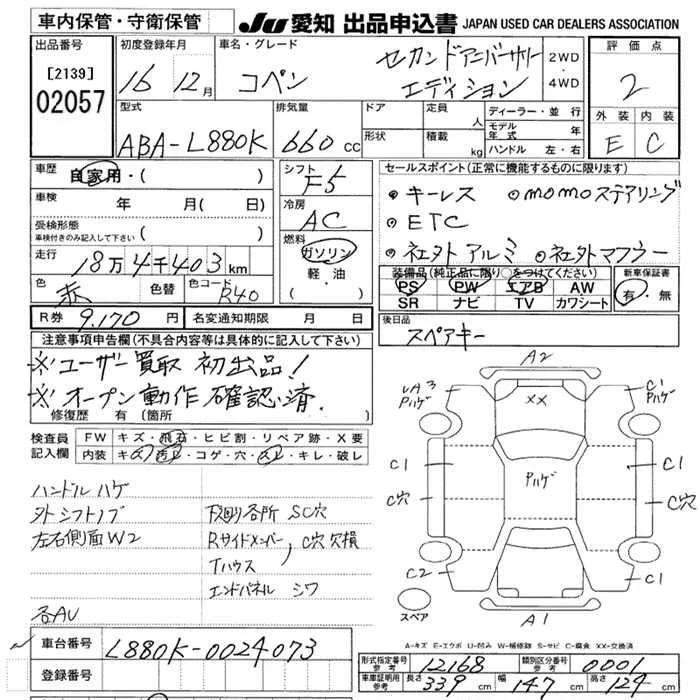 車内保管・守衛保管
JU 愛知 出品申込書 JAPAN USED CAR DEALERS ASSOCIATION
出品番号
[2139]
02057
初度登録年月
16 12月
車名・グレード
コペン
セカンドアニバーサリー
エディション
2WD
・
4WD
評価点
2
外装 内装
E C
型式
ABA-L880K
排気量
660 cc
ドア
形状
定員 人
積載 kg
ディーラー・並行
モデル年式 年
ハンドル 左・右
車歴 自家用・( )
車検 年 月( 日)
受検形態
車検付きのみ記入して下さい ( )
走行 18万4千403km
色 赤 色替 色コード R40
シフト
F5
冷房
AC
燃料
ガソリン
軽・油
( )
セールスポイント(正常に機能するものに限ります)
・キーレス ・momoステアリング
・ETC
・社外アルミ ・社外マフラー
装備品(純正品に限り○をつけてください)
PS PW エアB AW
SR ナビ TV カワシート
新車保証書
有・無
R券 9,170円 名変通知期限 月 日
後日品
スペアキー
注意事項申告欄(不具合内容等は具体的に記入して下さい)
※ユーザー買取 初出品!
※オープン動作確認済.
修復歴 有 (箇所
検査員記入欄
FW キズ・飛石・ヒビ割・リペア跡・X要
内装 キズ・汚レ・コゲ・穴・スレ・キレ・破レ
ハンドルハゲ
外シフトノブ
左右側面W2
下廻り各所SC穴
Rサイドメンバー,C穴欠損
Tハウス
エンドパネル シワ
各AU
A2
XX
Pハゲ
C1
Pハゲ
Pハゲ
C1
C1
C穴
C穴
C2
C1
A1
スペア
A-キズ E-エクボ U-凹み W-補修跡 S-サビ C-腐食 XX-交換済
車台番号 L880K-0024073
登録番号
形式指定番号参考 12168 類別区分番号参考 0001
車庫証明用参考 長さ 339cm 幅 147cm 高さ 124cm